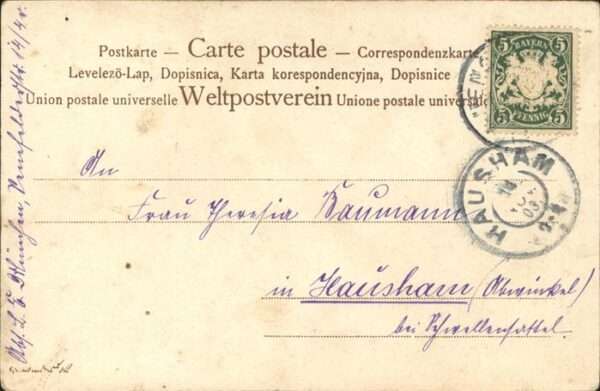 Postkarte — Carte postale — Correspondenzkarte
Levelezö-Lap, Dopisnica, Karta korespondencyjna, Dopisnice
Union postale universelle Weltpostverein Unione postale universale
BAYERN
5 5
PFENNIG
HAUSHAM
An
Frau Theresia Baumann
in Hausham (Abwinkel)
bei
Abs. L. B. München,